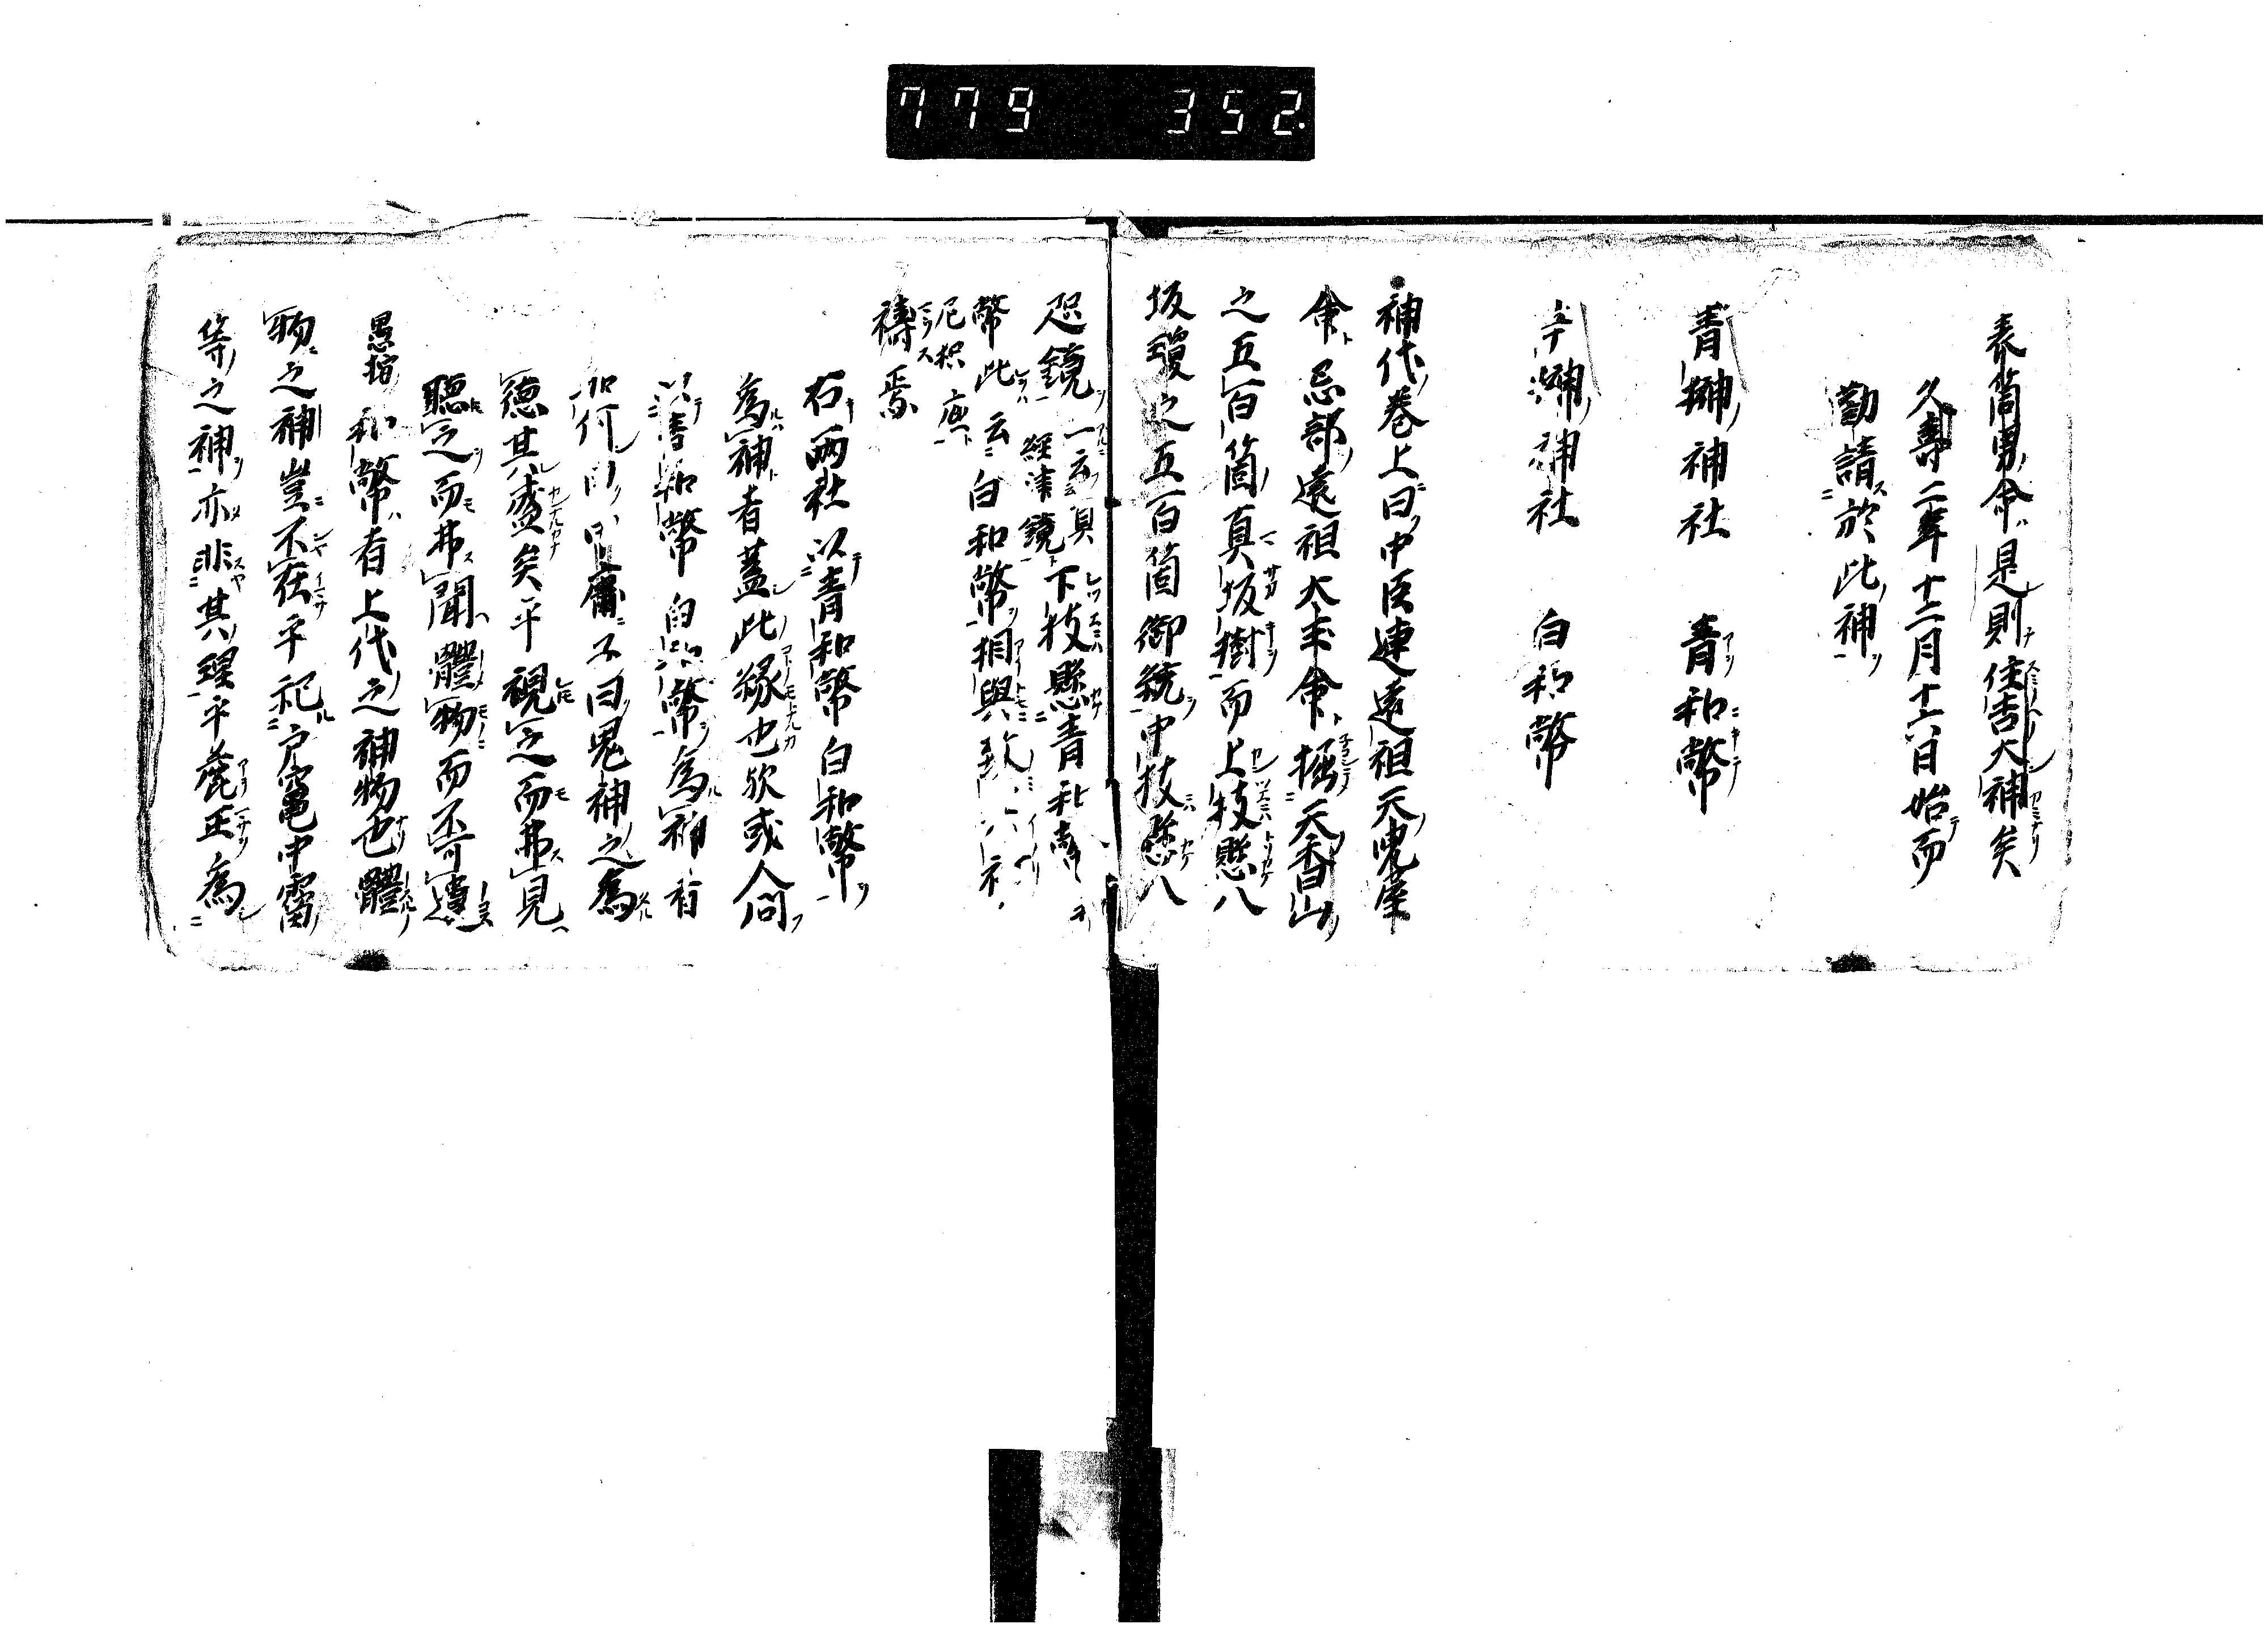 779 352.
表筒男命是則住吉大神矣
久壽二年十二月十六日始而
勸請於此神
青榊神社 青和幣
辛榊神社 白和幣
神代巻上曰中臣連遠祖天児屋
命忌部遠祖太玉命掘天香山
之五百箇真坂樹而上枝懸八
坂瓊之五百箇御統中枝懸八
咫鏡一云真経津鏡下枝懸青和幣
幣此云尼枳底白和幣相與致
祷焉
右兩社以青和幣白和幣
為神者蓋此縁也欤或人問
以青和幣白和幣為神有
如何 中庸子曰鬼神之為
德其盛矣乎視之而弗見
聽之而弗聞體物而不可遺
愚按和幣者上代之神物也體
物之神豈不在乎祀戸竈中霤
等之神亦非其理乎麁正為